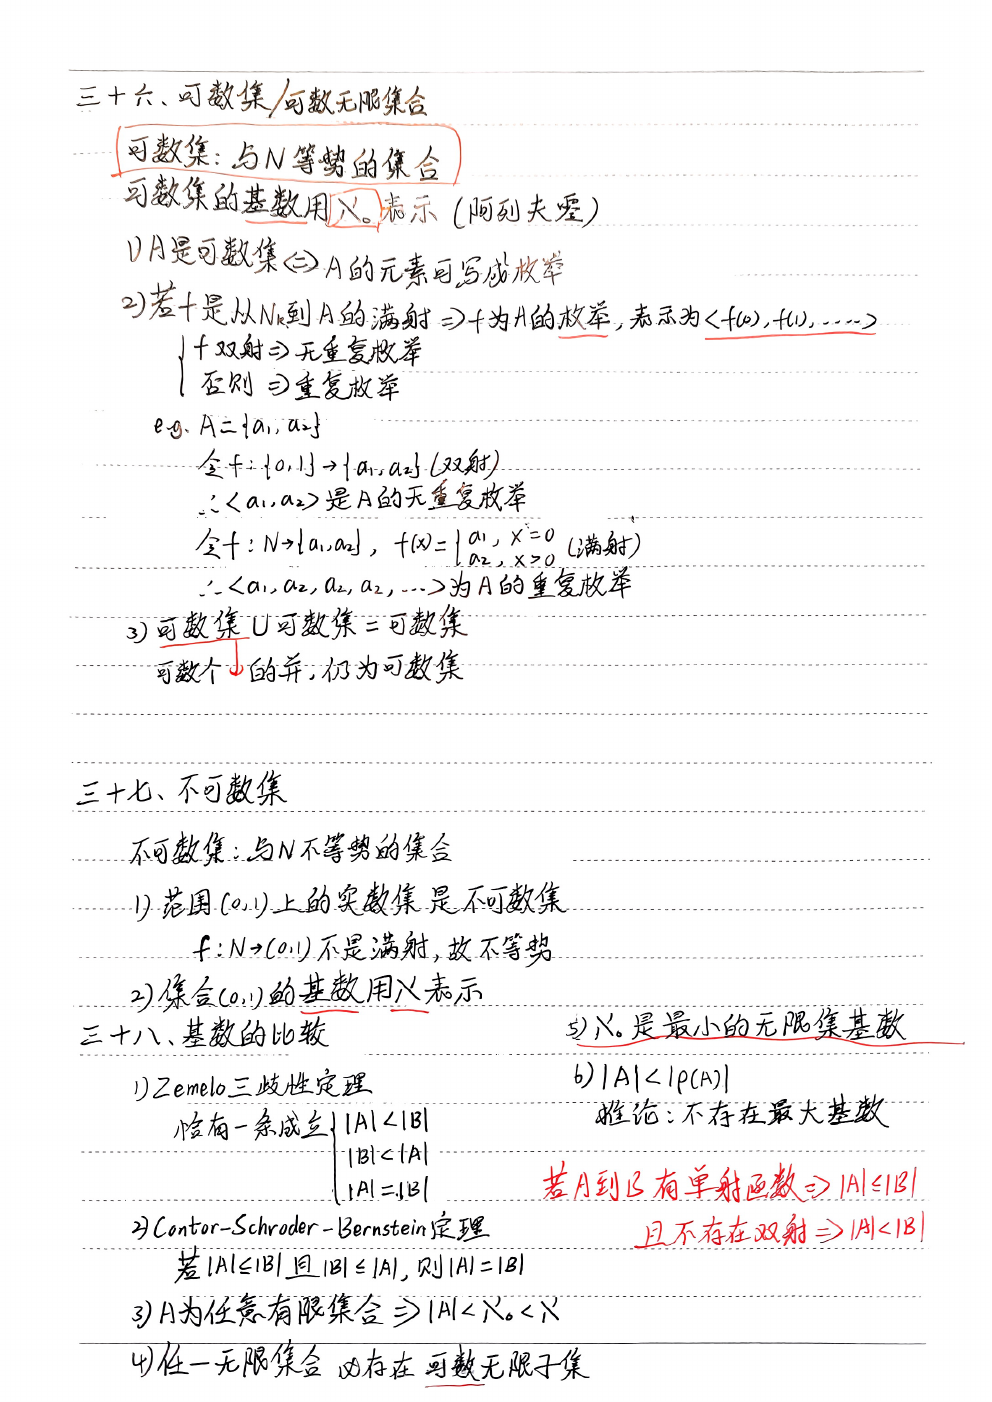 三十六、可数集/可数无限集合
可数集：与N等势的集合
可数集的基数用ℵ₀表示（阿列夫零）
1) A是可数集⇔A的元素可写成枚举
2) 若f是从Nₖ到A的满射⇒f为A的枚举，表示为<f(0), f(1), ……>
f双射⇒无重复枚举
否则⇒重复枚举
e.g. A={a₁, a₂}
令f：{0,1}→{a₁, a₂}（双射）
∴<a₁, a₂>是A的无重复枚举
令f：N→{a₁,a₂}， f(x)={a₁, x=0
a₂, x>0（满射）
∴<a₁, a₂, a₂, a₂, …>为A的重复枚举
3) 可数集∪可数集=可数集
可数个↓的并，仍为可数集
三十七、不可数集
不可数集：与N不等势的集合
1) 范围(0,1)上的实数集是不可数集
f：N→(0,1)不是满射，故不等势
2) 集合(0,1)的基数用ℵ表示
三十八、基数的比较
1) Zemelo三歧性定理
恰有一条成立{|A|<|B|
|B|<|A|
|A|=|B|
2) Contor-Schroder-Bernstein定理
若|A|≤|B|且|B|≤|A|，则|A|=|B|
3) A为任意有限集合⇒|A|<ℵ₀<ℵ
4) 任一无限集合必存在可数无限子集
5) ℵ₀是最小的无限集基数
6) |A|<|P(A)|
推论：不存在最大基数
若A到B有单射函数⇒|A|≤|B|
且不存在双射⇒|A|<|B|